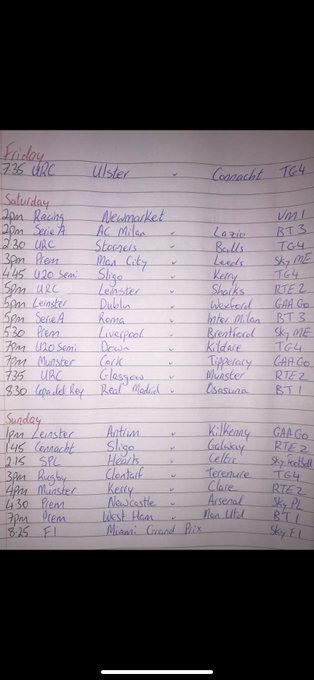 Friday
7.35 URC Ulster v Connacht TG4
Saturday
2pm Racing Newmarket VM1
2pm Serie A AC Milan v Lazio BT 3
2.30 URC Stormers v Bulls TG4
3pm Prem Man City v Leeds Sky ME
4.45 U20 Semi Sligo v Kerry TG4
5pm URC Leinster v Sharks RTE 2
5pm Leinster Dublin v Wexford GAA Go
5pm Serie A Roma v Inter Milan BT 3
5.30 Prem Liverpool v Brentford Sky ME
7pm U20 Semi Down v Kildare TG4
7pm Munster Cork v Tipperary GAA Go
7.35 URC Glasgow v Munster RTE 2
8.30 Copa del Rey Real Madrid v Osasuna BT 1
Sunday
1pm Leinster Antrim v Kilkenny GAA Go
1.45 Connacht Sligo v Galway RTE 2
2.15 SPL Hearts v Celtic Sky Football
3pm Rugby Clontarf v Terenure TG4
4pm Munster Kerry v Clare RTE 2
4.30 Prem Newcastle v Arsenal Sky PL
7pm Prem West Ham v Man Utd BT 1
8.25 F1 Miami Grand Prix Sky F1